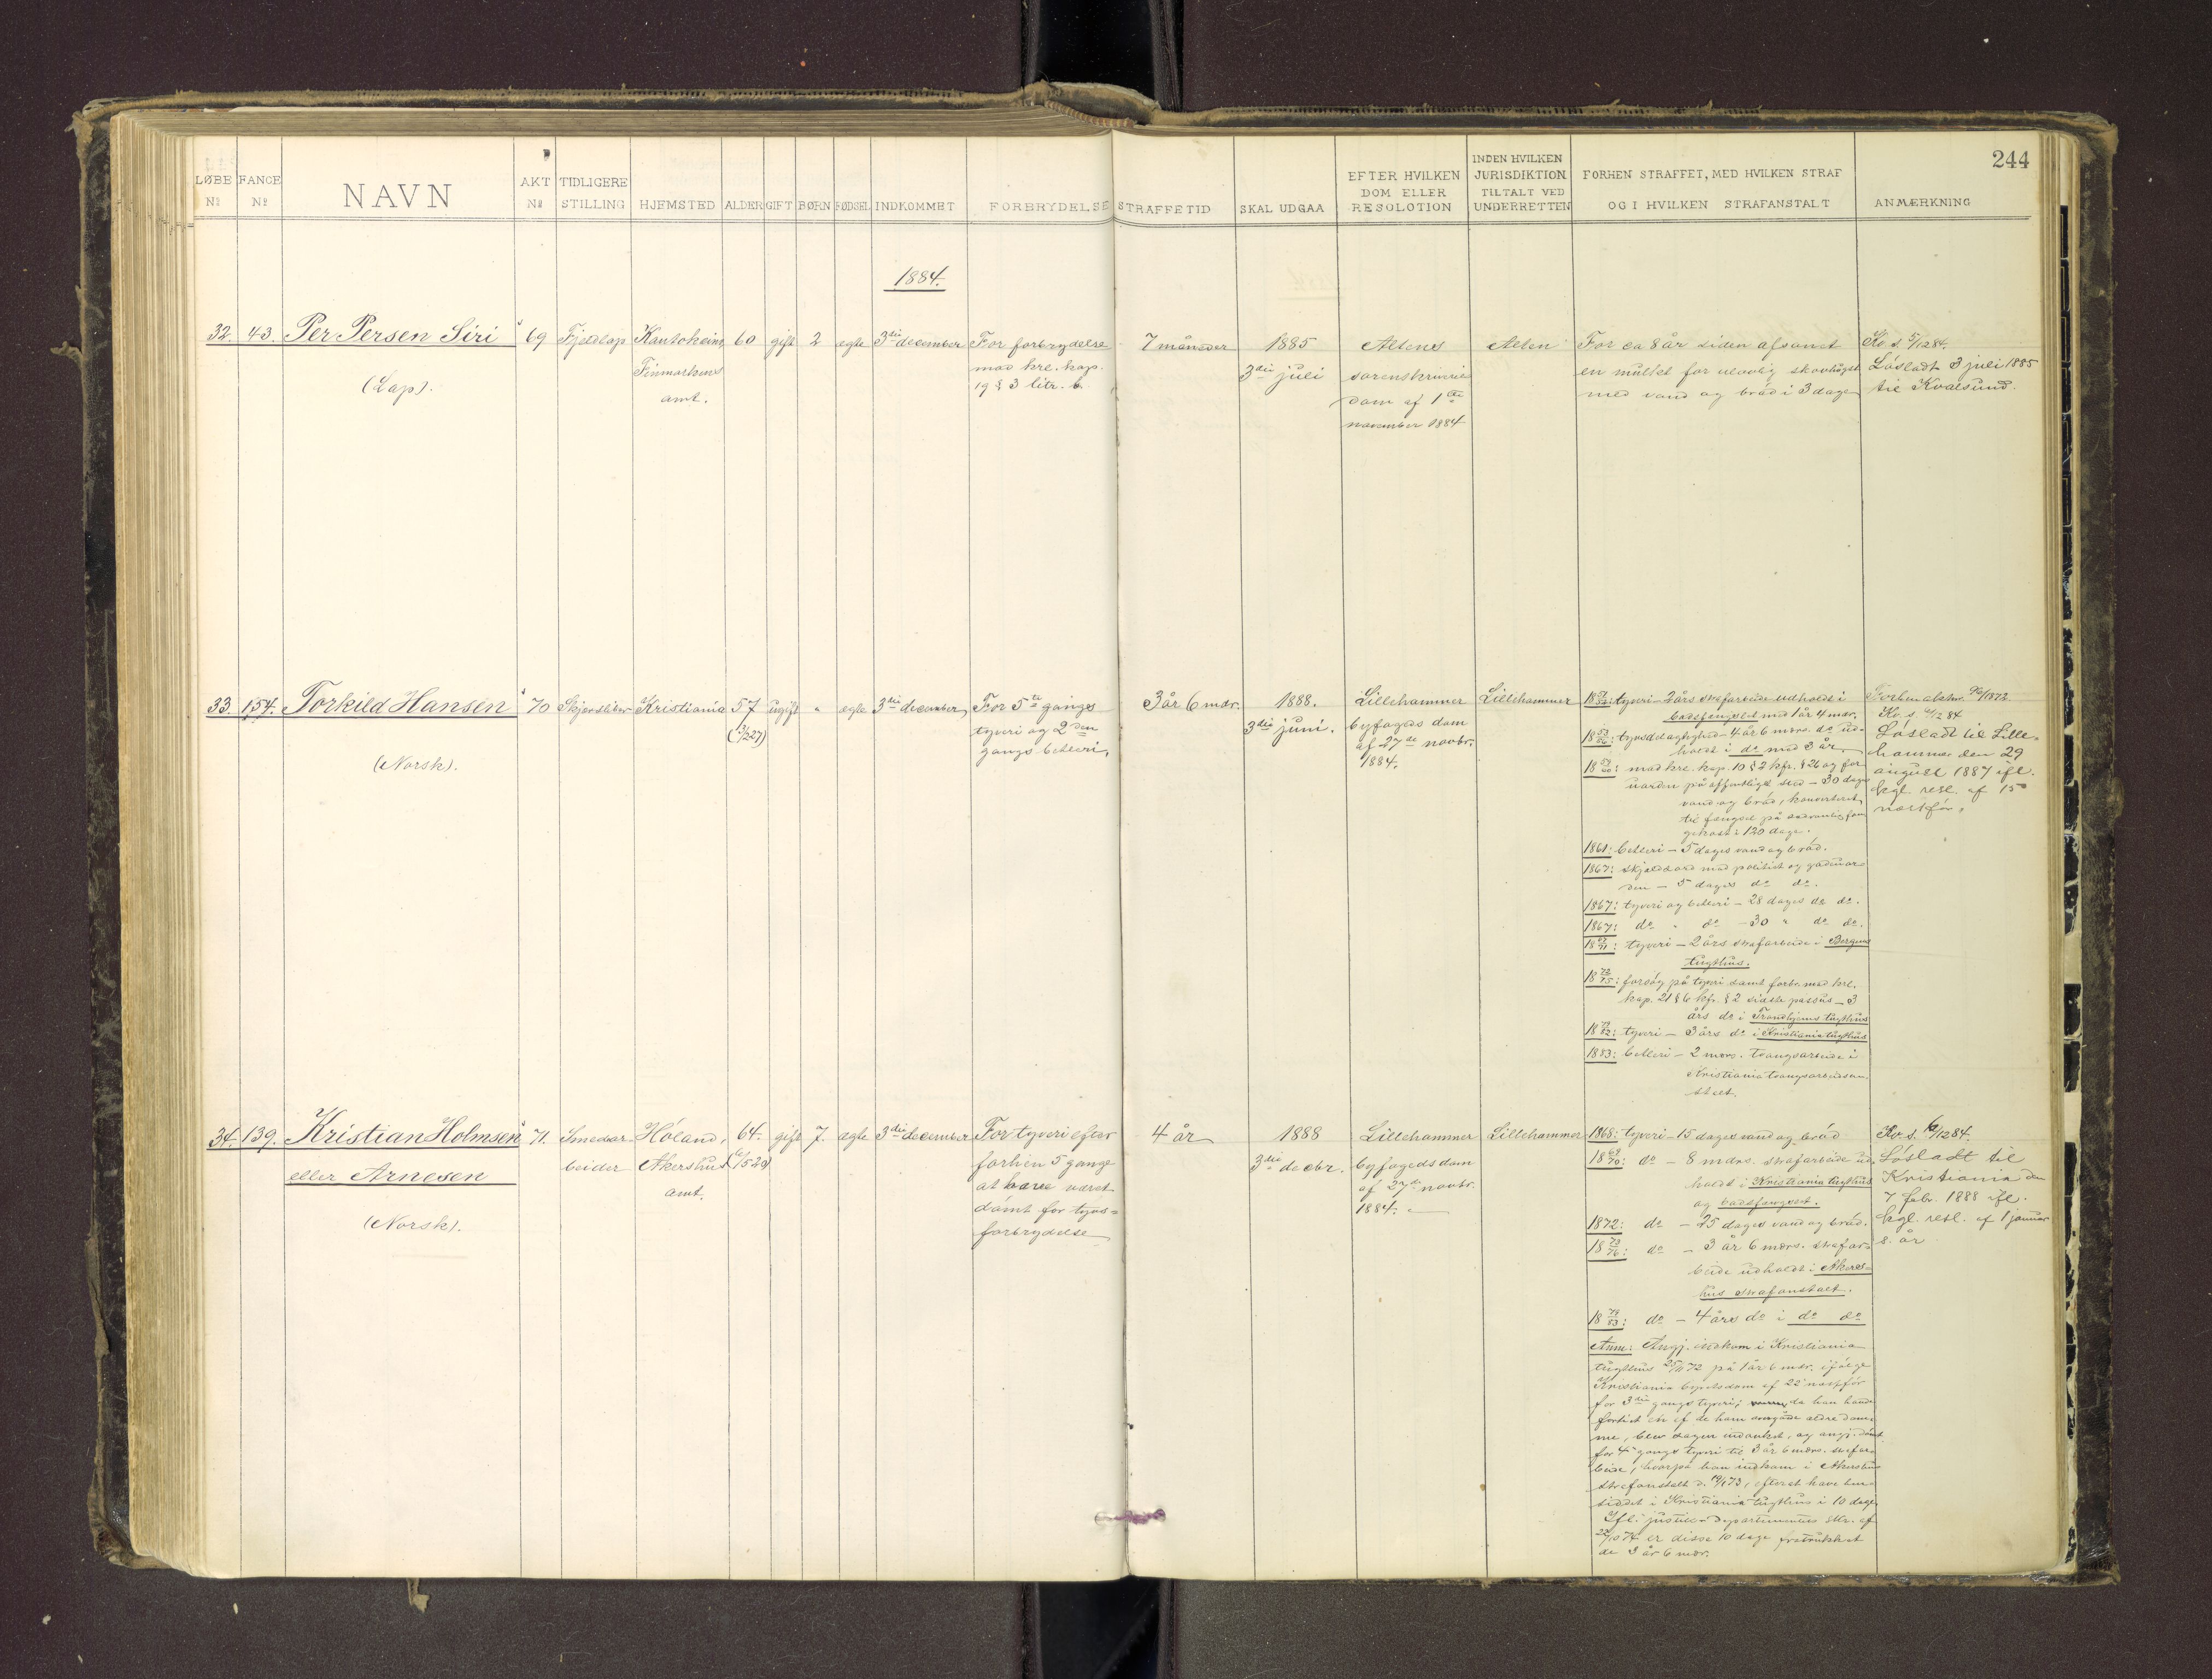 244
LØBE Nº
FANGE Nº
NAVN
AKT Nº
TIDLIGERE STILLING
HJEMSTED
ALDER
GIFT
BØRN
FØDSEL
INDKOMMET
FORBRYDELSE
STRAFFETID
SKAL UDGAA
EFTER HVILKEN
DOM ELLER
RESOLOTION
INDEN HVILKEN
JURISDIKTION
TILTALT VED
UNDERRETTEN
FORHEN STRAFFET, MED HVILKEN STRAF
OG I HVILKEN STRAFANSTALT
ANMÆRKNING
1884.
32.
43.
Per Persen Siri
(Lap).
69
Fjeldlap
Kautokeino,
Finmarkens
amt.
60
gift
2
ægte
3die december
For forbrydelse
mod krl. kap.
19 § 3 litr. b.
7 måneder
1885
3die juli
Altens
sorenskriveri
dom af 1ste
november 1884
Alten
For ca 8 år siden afsonet
en mulkt for ulovlig skovhugst
med vand og brød i 3 dage
Kv. s. 5/12 84.
Løsladt 3 juli 1885
til Kvalsund.
33.
154.
Torkild Hansen
(Norsk).
70
Skjærsliber
Kristiania
57
(3/227)
ugift
"
ægte
3die december
For 5te gangs
tyveri og 2den
gangs betleri.
3 år 6 mdr.
1888.
3die juni.
Lillehammer
byfogeds dom
af 27de novbr.
1884.
Lillehammer
tyveri - 2 års strafarbeide udholdt i
bodsfængslet med 1 år 4 mdr.
tyvsdelagtighed - 4 år 6 mdrs. do ud-
holdt i do med 3 år.
mod krl. kap. 10 § 2 kfr. § 26 og for
uorden på offentligt sted - 30 dages
vand og brød, konverteret
til fængsel på sædvanlig fan-
gekost i 120 dage.
1861: betleri - 5 dages vand og brød.
1867: skjældsord mod politiet og gadeuor-
den - 5 dages do do.
1867: tyveri og betleri - 28 dages do do.
1867: do " do - 30 " do do.
18 69/71: tyveri - 2 års strafarbeide i Bergens
tugthus.
18 72/75: forsøg på tyveri samt forbr. mod krl.
kap. 21 § 6 kfr. § 2 sidste passus - 3
års do i Trondhjems tugthus
18 79/82: tyveri - 3 års do i Kristiania tugthus
1883: betleri - 2 mdrs. tvangsarbeide i
Kristiania tvangsarbeidsan-
stalt.
Kv. s. 4/12 84
Løsladt til Lille-
hammer den 29
august 1887 ifl.
kgl. resl. af 15
næstfør.
34.
139.
Kristian Holmsen
eller Arnesen
(Norsk).
71.
Smedar-
beider
Høland,
Akershus
amt.
64.
(6/520)
gift
7.
ægte
3die december
For tyveri efter
forhen 5 gange
at have været
dømt for tyvs-
forbrydelse
4 år
1888
3die decbr.
Lillehammer
byfogeds dom
af 27de novbr.
1884.
Lillehammer
1868: tyveri - 15 dages vand og brød
18 69/70: do - 8 mdrs. strafarbeide ud-
holdt i Kristiania tugthus
og bodsfængslet.
1872: do - 25 dages vand og brød.
18 73/76: do - 3 år 6 mdrs. strafar-
beide udholdt i Akers-
hus strafanstalt.
18 79/83: do - 4 års do i do do
Anm: Angj. indkom i Kristiania
tugthus 25/11 72 på 1 år 6 mdr. ifølge
Kristiania byretsdom af 22 næstfør
for 3die gangs tyveri; da han havde
fortiet en af de ham overgåde ældre dom-
me, blev sagen indanket, og angj. dømt
for 4de gangs tyveri til 3 år 6 mdrs. strafar-
beide, hvorpå han indkom i Akershus
strafanstalt efter at have hen-
siddet i Kristiania tugthus i 10 dage
Ifl. justits-departementets skr. af
er disse 10 dage fratrukket
de 3 år 6 mdr.
Kv. s. 12 84.
Løsladt til
Kristiania den
7 febr. 1888 ifl.
kgl. resl. af januar
s. år